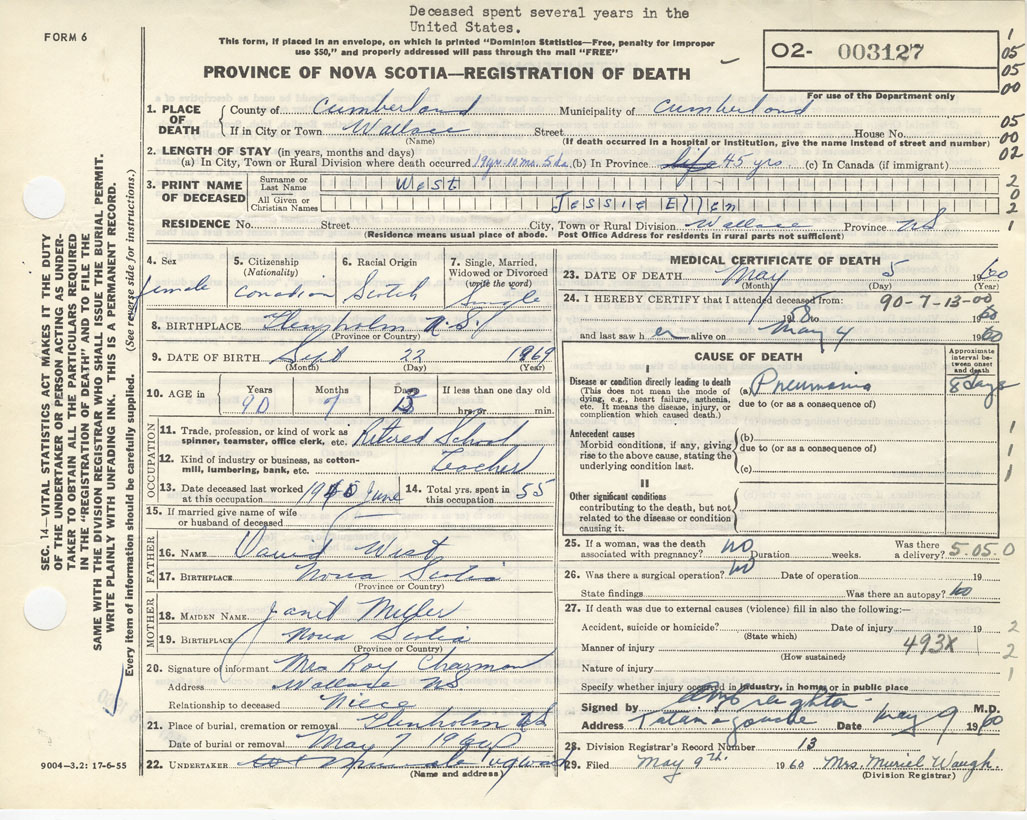 Deceased spent several years in the
United States.
FORM 6
This form, if placed in an envelope, on which is printed "Dominion Statistics—Free, penalty for improper
use $50," and properly addressed will pass through the mail "FREE"
O2- 003127
For use of the Department only
1
05
05
00
05
00
02
2
0
2
1
PROVINCE OF NOVA SCOTIA—REGISTRATION OF DEATH
1. PLACE OF DEATH County of Cumberland Municipality of Cumberland
If in City or Town Wallace Street House No.
(Name) (If death occurred in a hospital or institution, give the name instead of street and number)
2. LENGTH OF STAY (in years, months and days)
(a) In City, Town or Rural Division where death occurred 19 yr. 10 mo. 5 da. (b) In Province life 45 yrs (c) In Canada (if immigrant)
3. PRINT NAME OF DECEASED Surname or Last Name West
All Given or Christian Names Jessie Ellen
RESIDENCE No. Street City, Town or Rural Division Wallace Province N.S
(Residence means usual place of abode. Post Office Address for residents in rural parts not sufficient)
SEC. 14—VITAL STATISTICS ACT MAKES IT THE DUTY
OF THE UNDERTAKER OR PERSON ACTING AS UNDER-
TAKER TO OBTAIN ALL THE PARTICULARS REQUIRED
IN THE "REGISTRATION OF DEATH" AND TO FILE THE
SAME WITH THE DIVISION REGISTRAR WHO SHALL ISSUE THE BURIAL PERMIT.
WRITE PLAINLY WITH UNFADING INK. THIS IS A PERMANENT RECORD.
Every item of information should be carefully supplied. (See reverse side for instructions.)
4. Sex female
5. Citizenship (Nationality) Canadian
6. Racial Origin Scotch
7. Single, Married, Widowed or Divorced (write the word) Single
8. BIRTHPLACE Glenholm N.S.
(Province or Country)
9. DATE OF BIRTH Sept 22 1869
(Month) (Day) (Year)
10. AGE in Years 90 Months 7 Days 13 If less than one day old hrs. or min.
OCCUPATION
11. Trade, profession, or kind of work as spinner, teamster, office clerk, etc. Retired School
12. Kind of industry or business, as cotton-mill, lumbering, bank, etc. Teacher
13. Date deceased last worked at this occupation June
14. Total yrs. spent in this occupation 55
15. If married give name of wife or husband of deceased
FATHER
16. NAME David West
17. BIRTHPLACE Nova Scotia
(Province or Country)
MOTHER
18. MAIDEN NAME Janet Miller
19. BIRTHPLACE Nova Scotia
(Province or Country)
20. Signature of informant Mrs Roy Chapman
Address Wallace N.S.
Relationship to deceased Niece
21. Place of burial, cremation or removal Glenholm N.S
Date of burial or removal May 7 1960
22. UNDERTAKER
(Name and address)
9004—3.2: 17-6-55
MEDICAL CERTIFICATE OF DEATH
23. DATE OF DEATH May 5 1960
(Month) (Day) (Year)
24. I HEREBY CERTIFY that I attended deceased from: 90-7-13-00
to May 4 1960
and last saw her alive on 1960
CAUSE OF DEATH
Approximate interval between onset and death
I
Disease or condition directly leading to death (a) Pneumonia 8 days
(This does not mean the mode of dying, e.g., heart failure, asthenia, etc. It means the disease, injury, or complication which caused death.) due to (or as a consequence of)
Antecedent causes (b)
Morbid conditions, if any, giving rise to the above cause, stating the underlying condition last. due to (or as a consequence of)
(c)
1
1
1
II
Other significant conditions
contributing to the death, but not related to the disease or condition causing it.
25. If a woman, was the death associated with pregnancy? NO Duration weeks. Was there a delivery? 5.05.0
26. Was there a surgical operation? NO Date of operation 19
State findings Was there an autopsy? No
27. If death was due to external causes (violence) fill in also the following:—
Accident, suicide or homicide? Date of injury 19 2
(State which)
Manner of injury 493X 2
(How sustained)
Nature of injury 1
Specify whether injury occurred in industry, in home, or in public place
Signed by Creighton M.D.
Address Tatamagouche Date May 9 1960
28. Division Registrar's Record Number 13
29. Filed May 9th. 1960 Mrs. Muriel Waugh.
(Division Registrar)